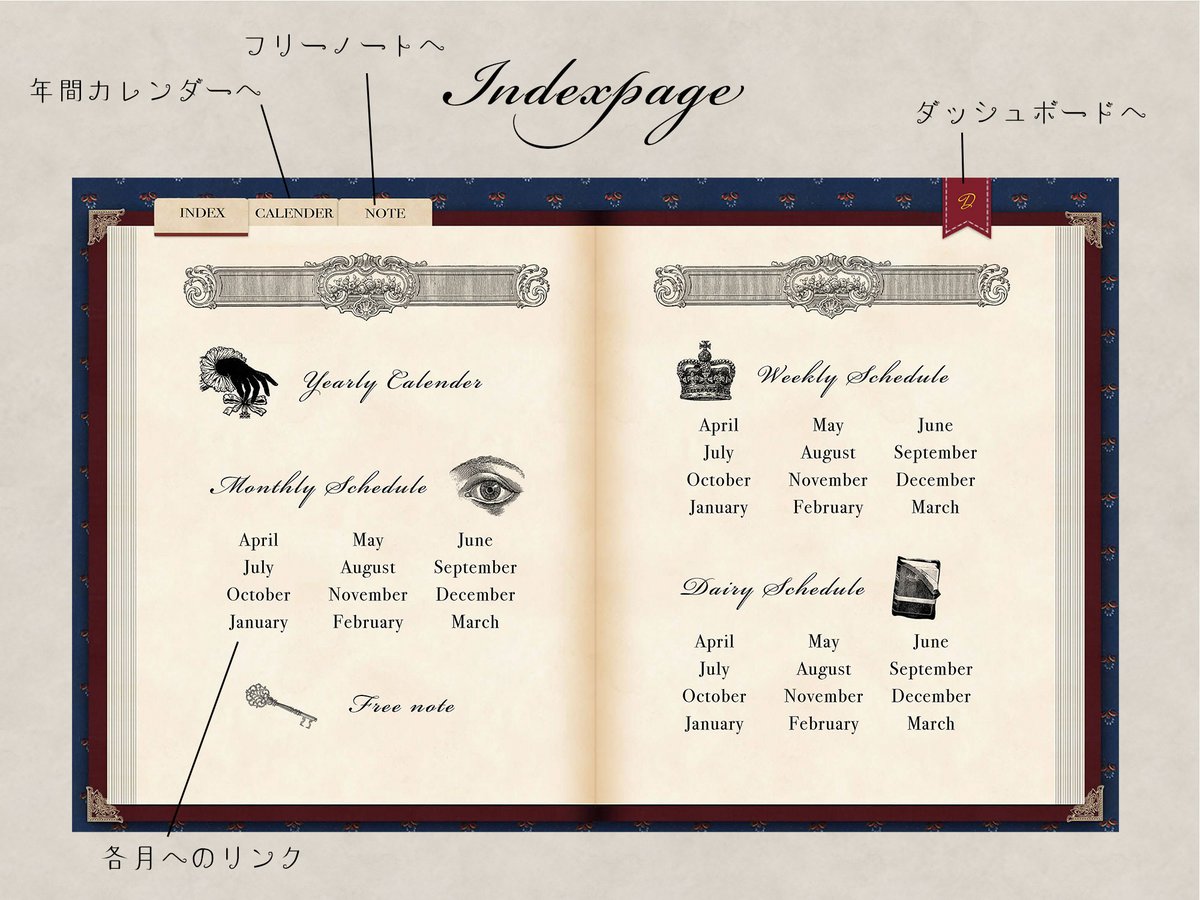 フリーノートへ
年間カレンダーへ
Indexpage
ダッシュボードへ
INDEX CALENDER NOTE
D
Yearly Calender
Monthly Schedule
April May June
July August September
October November December
January February March
Free note
Weekly Schedule
April May June
July August September
October November December
January February March
Dairy Schedule
April May June
July August September
October November December
January February March
各月へのリンク